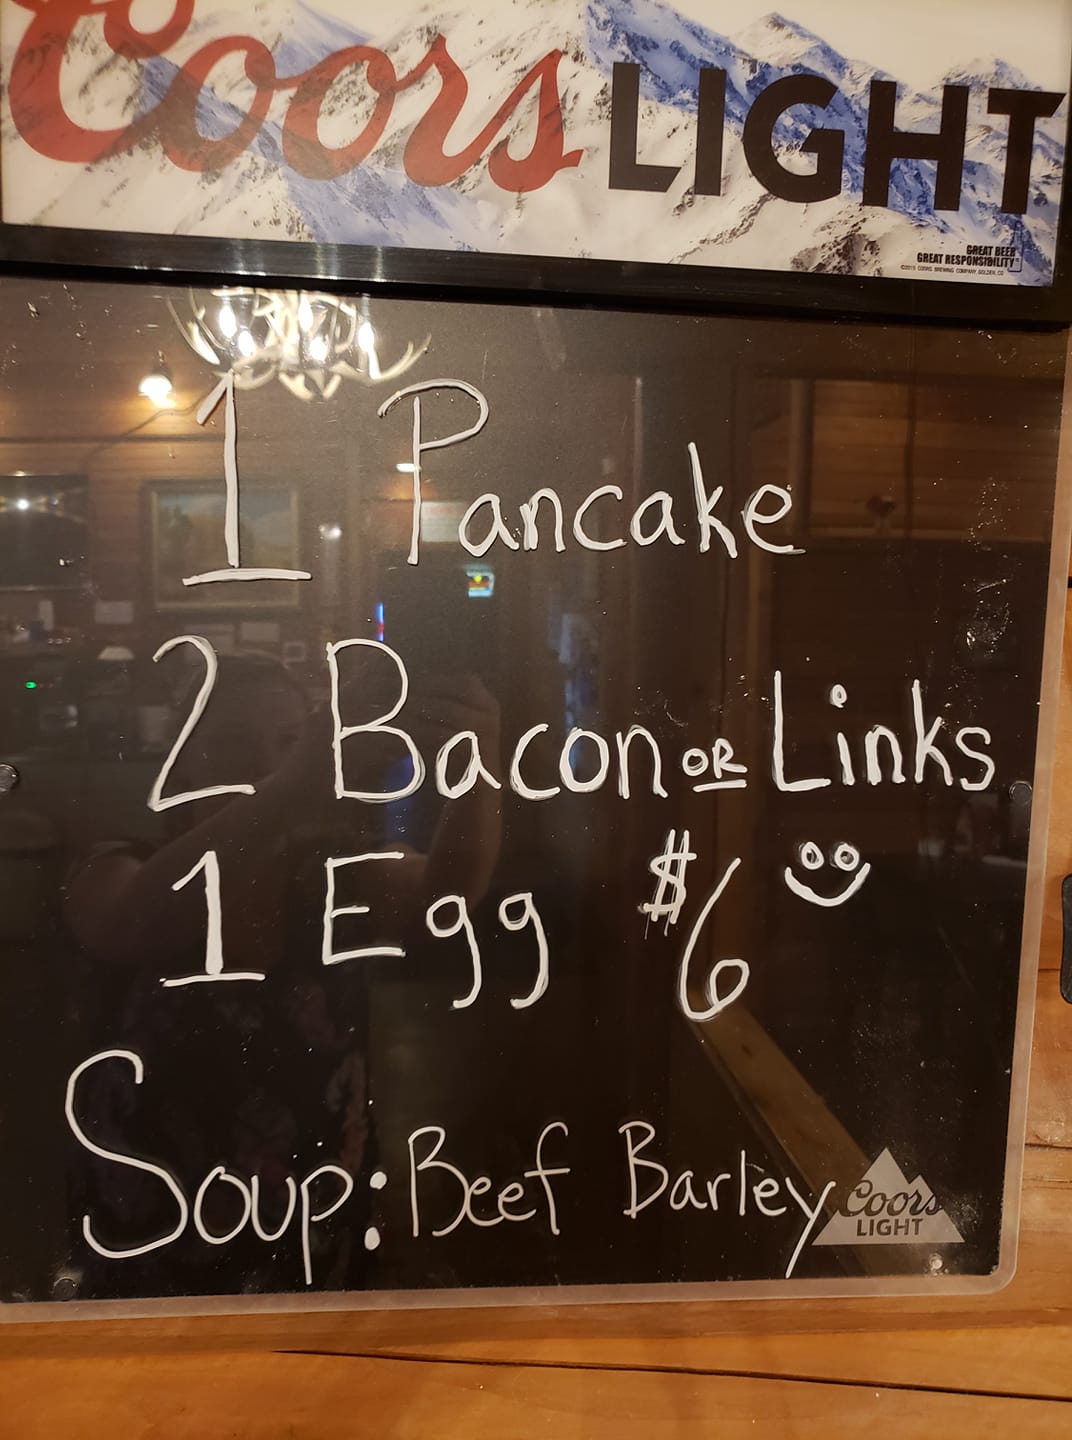 Coors LIGHT
GREAT BEER
GREAT RESPONSIBILITY
©2015 COORS BREWING COMPANY, GOLDEN, CO
1 Pancake
2 Bacon OR Links
1 Egg $6
Soup: Beef Barley
Coors
LIGHT